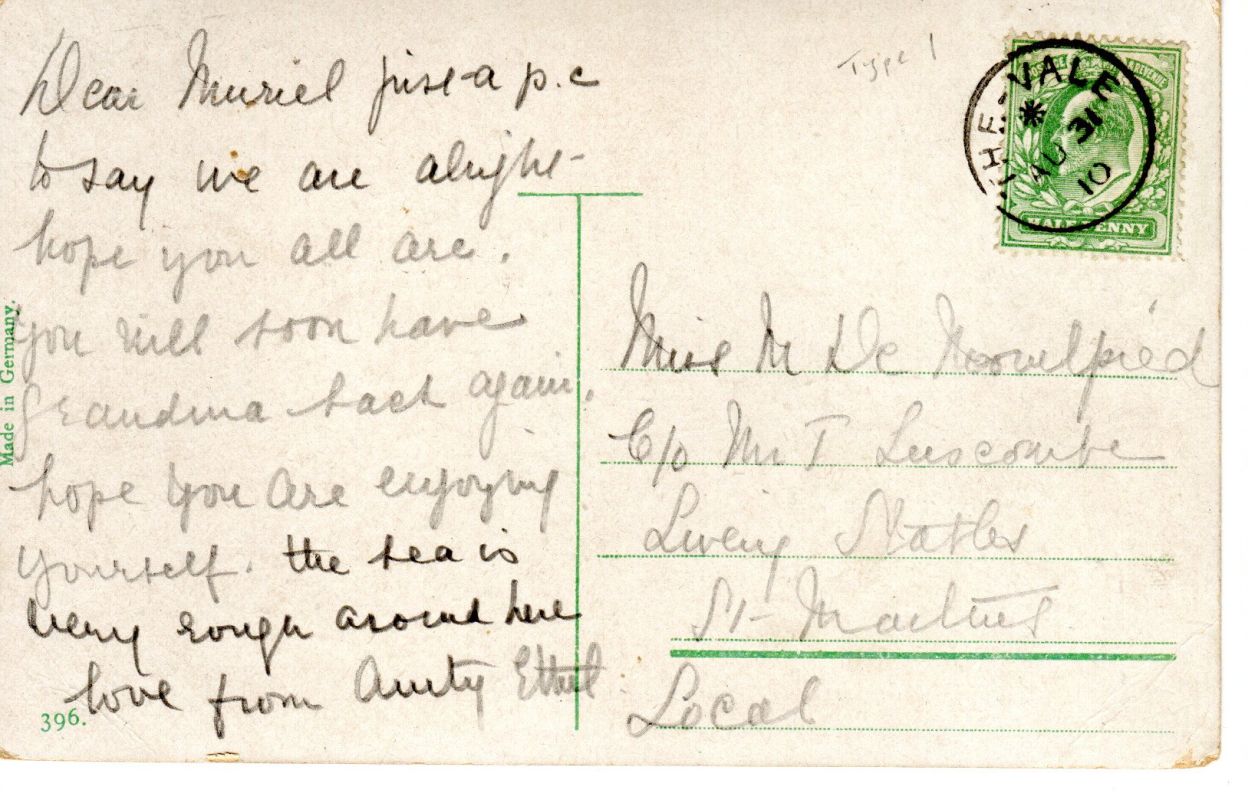 Dear Muriel just a p.c
to say we are alright
hope you all are.
you will soon have
Grandma back again.
hope you are enjoying
yourself. the sea is
very rough around here
love from Aunty Ethel
396.
Made in Germany.
Type 1
THE-VALE
AU 31
10
POSTAGE & REVENUE
HALFPENNY
Miss M De Mouilpied
C/o Mr T. Luscombe
Livery Stables
St Martins
Local